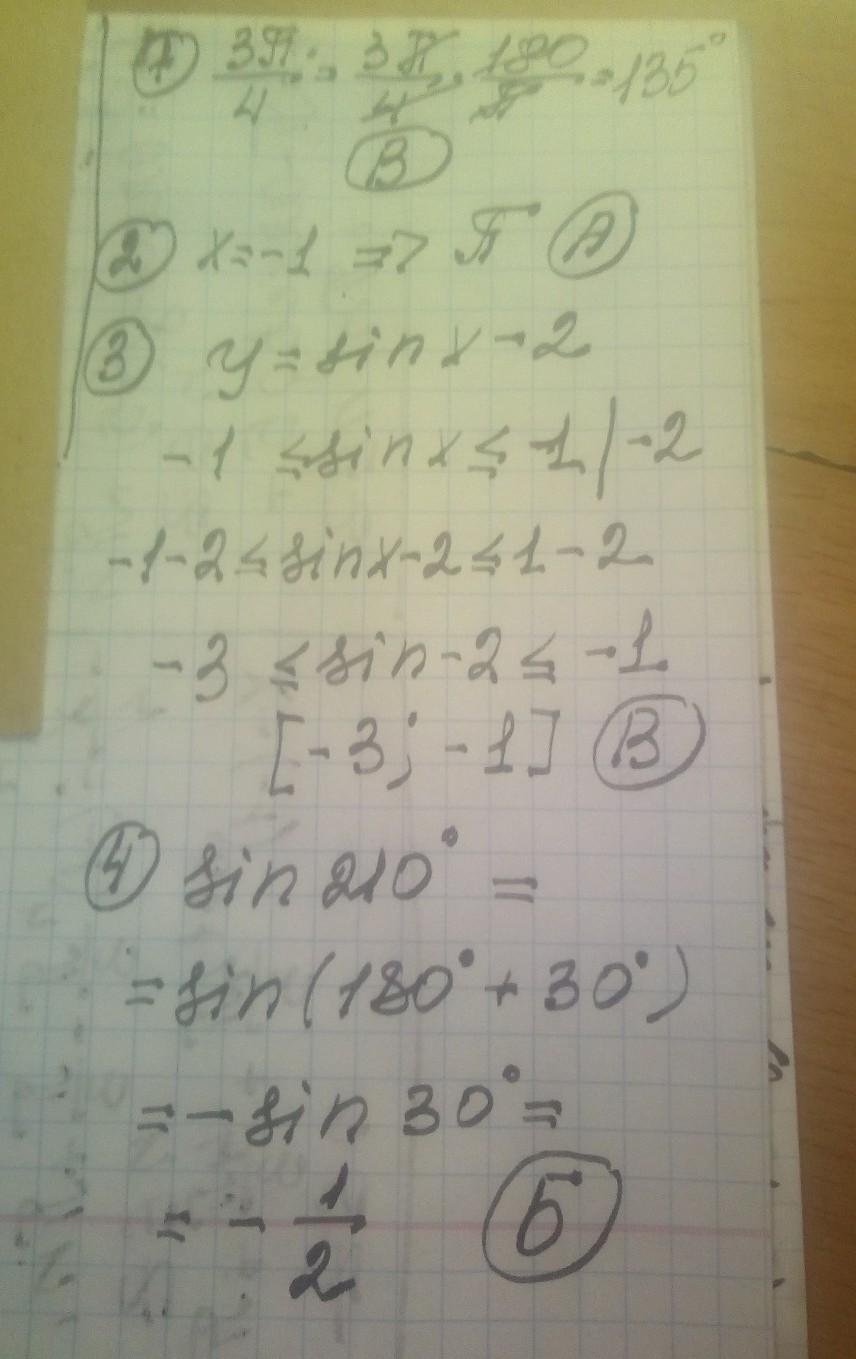 ① 3π/4 = 3π/4 · 180/π = 135°
В
② x=-1 => π А
③ y = sin x - 2
-1 ≤ sin x ≤ 1 | -2
-1-2 ≤ sin x-2 ≤ 1-2
-3 ≤ sin-2 ≤ -1
[-3; -1] В
④ sin 210° =
= sin(180° + 30°)
= - sin 30° =
= - 1/2 Б